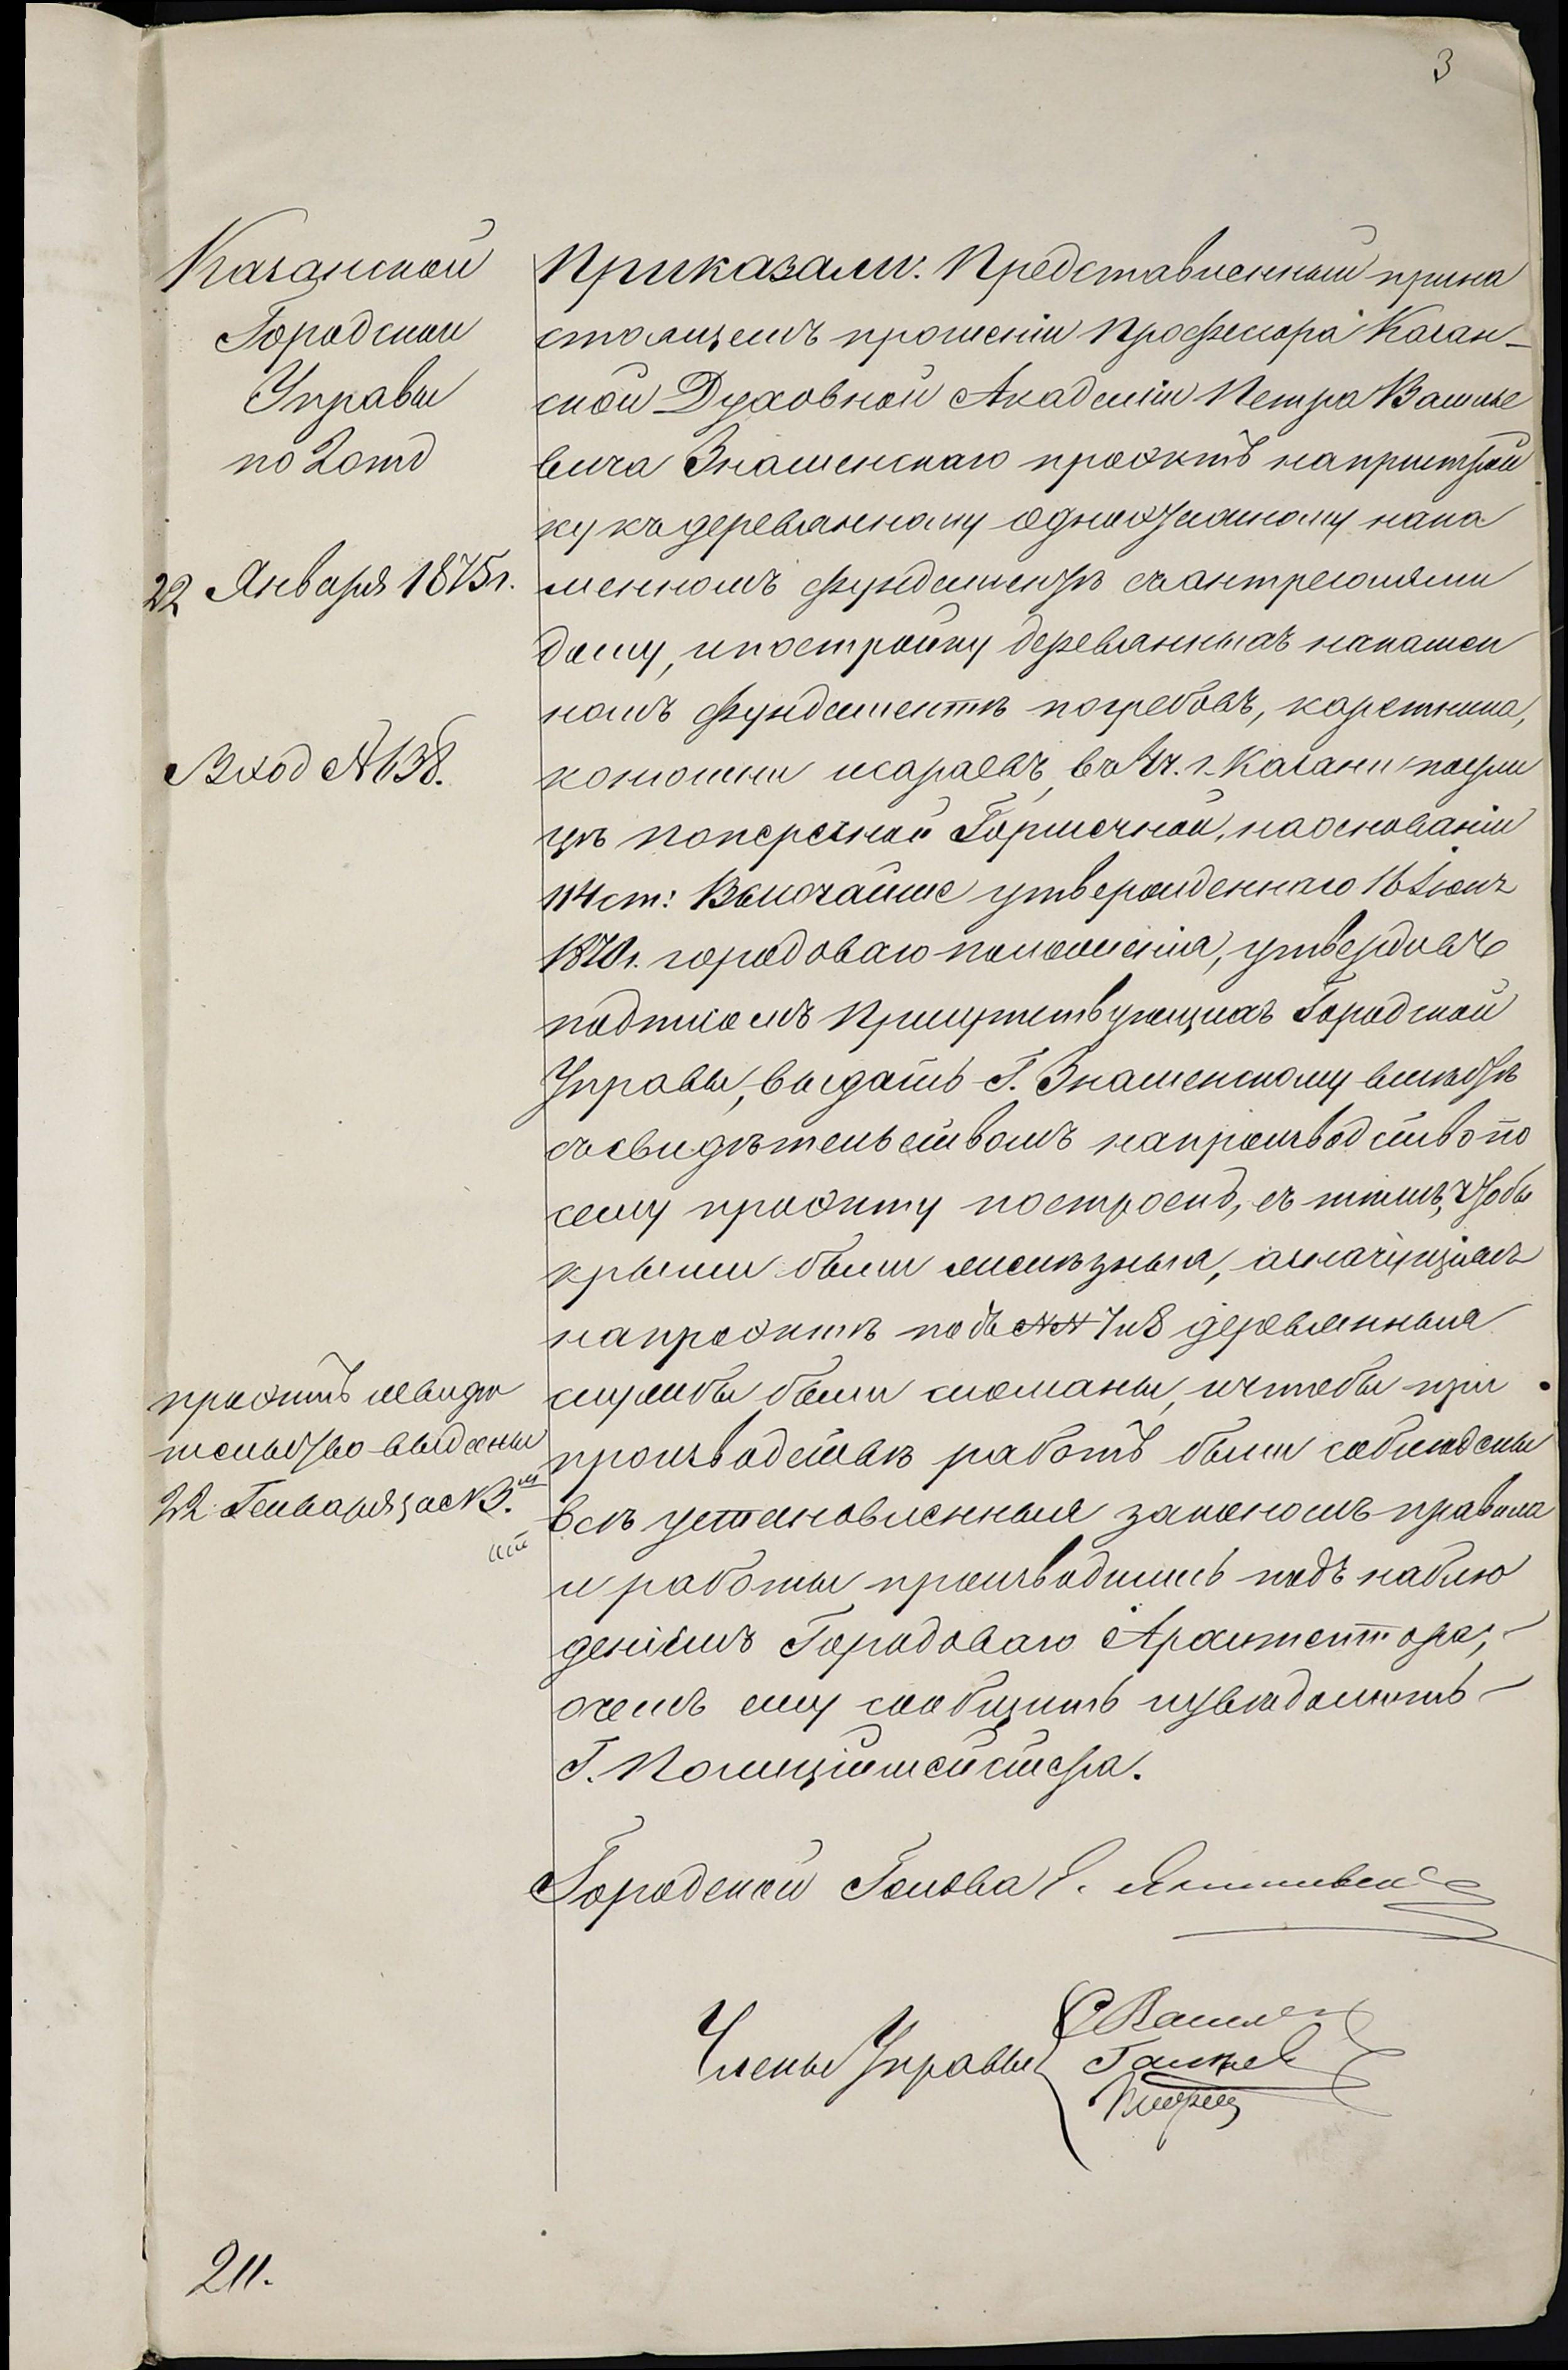 3
Казанской
Городской
Управы
по 2 отд
22 Января 1875 г.
Вход № 638.
Приказали: Представленный при на
стоящемъ прошеніи Профессора Казан-
ской Духовной Академіи Петра Василье
вича Знаменскаго проэктъ на пристрой
ку къ деревянному одноэтажному на ка
менномъ фундаментѣ съ антресолями
дому, и постройку деревянныхъ на камен
номъ фундаментѣ погребовъ, каретника,
конюшни и сараевъ, в 4 ч. г. Казани по ули
цѣ Поперечной Горшечной, на основаніи
114 ст: Высочайше утвержденнаго 16 Іюня
1870 г. городоваго положенія, утвердивъ
подписомъ Присутствующихъ Городской
Управы, выдать Г. Знаменскому вместѣ
съ свидѣтельствомъ на производство по
сему проэкту построекъ, съ тѣмъ, чтобы
крыши были желѣзныя, а значущіяся
на проэктѣ подъ №№ 7 и 8 деревянныя
службы были сломаны, и чтобы при
производствѣ работъ были соблюдены
всѣ установленныя закономъ правила
и работы производились подъ наблю
деніемъ Городоваго Архитектора,-
о чемъ ему сообщить и увѣдомить-
Г. Полиціймейстера.
проэктъ и свидѣ
тельство выданы
22 Генваря за № 3.
Городской Голова Э. Янишевскій
Члены Управы
211.